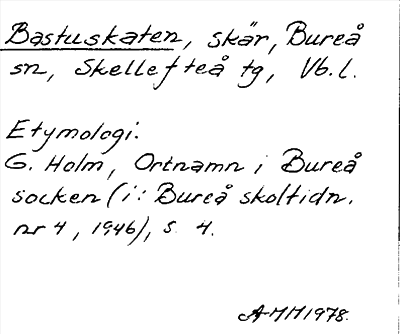 Bastuskaten, skär, Bureå
sn, Skellefteå tg, Vb.l.
Etymologi:
G. Holm, Ortnamn i Bureå
socken (i: Bureå skoltidn.
nr 4, 1946), s. 4.
AMM1978.